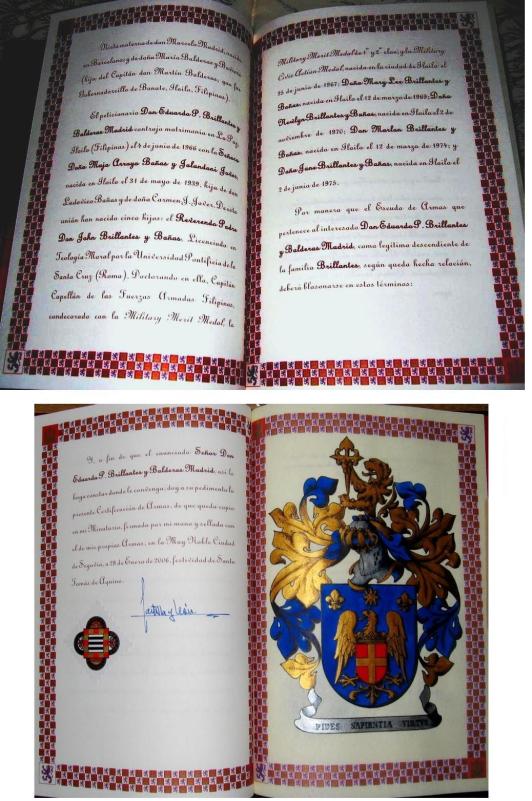 Nieto materno de don Marcelo Madrid, nacido
en Barcelona y de doña María Balderas y
(hija del Capitán don Martín Balderas, que fue
Gobernadorcillo de Banate, Iloilo, Filipinas).
El peticionario Don Eduardo P. Brillantes y
Balderas Madrid contrajo matrimonio en La Paz,
Iloilo (Filipinas) el 5 de junio de 1966 con la Señora
Doña Maja Arroyo Bañas y Jalandoni Javier,
nacida en Iloilo el 31 de mayo de 1939, hija de don
Ludovico Bañas y de doña Carmen J. Javier. De esta
unión han nacido cinco hijos: el Reverendo Padre
Don John Brillantes y Bañas, Licenciado en
Teología Moral por la Universidad Pontificia de la
Santa Cruz (Roma), Doctorando en ella, Capitán
Capellán de las Fuerzas Armadas Filipinas,
condecorado con la Military Merit Medal, la
Military Merit Medal de 1ª y 2ª clase y la Military
Civic Action Medal, nacido en la ciudad de Iloilo el
25 de junio de 1967; Doña Mary Lee Brillantes y
Bañas, nacida en Iloilo el 12 de marzo de 1969; Doña
Brillantes y Bañas, nacida en Iloilo el 2 de
noviembre de 1970; Don Marlon Brillantes y
Bañas, nacido en Iloilo el 12 de marzo de 1974; y
Doña June Brillantes y Bañas, nacida en Iloilo el
2 de junio de 1975.
Por manera que el Escudo de Armas que
pertenece al interesado Don Eduardo P. Brillantes
y Balderas Madrid, como legítimo descendiente de
la familia Brillantes, según queda hecha relación,
deberá blasonarse en estos términos:
Y a fin de que el enunciado Señor Don
Eduardo P. Brillantes y Balderas Madrid, así lo
haga constar donde le convenga, doy a su pedimento la
presente Certificación de Armas, de que queda copia
en mi Minutario, firmada por mi mano y sellada con
el de mis propias Armas, en la Muy Noble Ciudad
de Segovia, a 28 de Enero de 2006, festividad de Santo
Tomás de Aquino.
FIDES SAPIENTIA VIRTUS